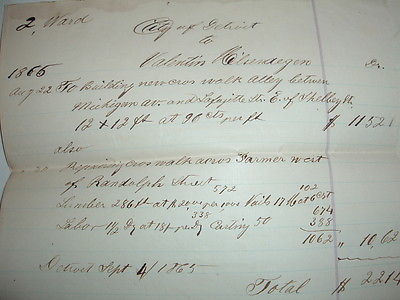 2, Ward
City of Detroit
to
Valentin Hilsendegen
Dr.
1865
Aug 22 To Building new cros walk alley betwen
Michigan Av. and Lafayitte St. E. of Shelby St.
12 + 12 ft at 90 cts per ft $ 11 52
also
Repairing cros walk acros Farmer west
of Randolph Street
572 102
Lumber 286 ft at 20 per 1000 Nails 17 at 6 cst
674
338 388
Labor 1 1/2 Dy at 18/ per Dy Carting 50
1062 " 10,62
Detroit Sept 4/1865
Total $ 2214